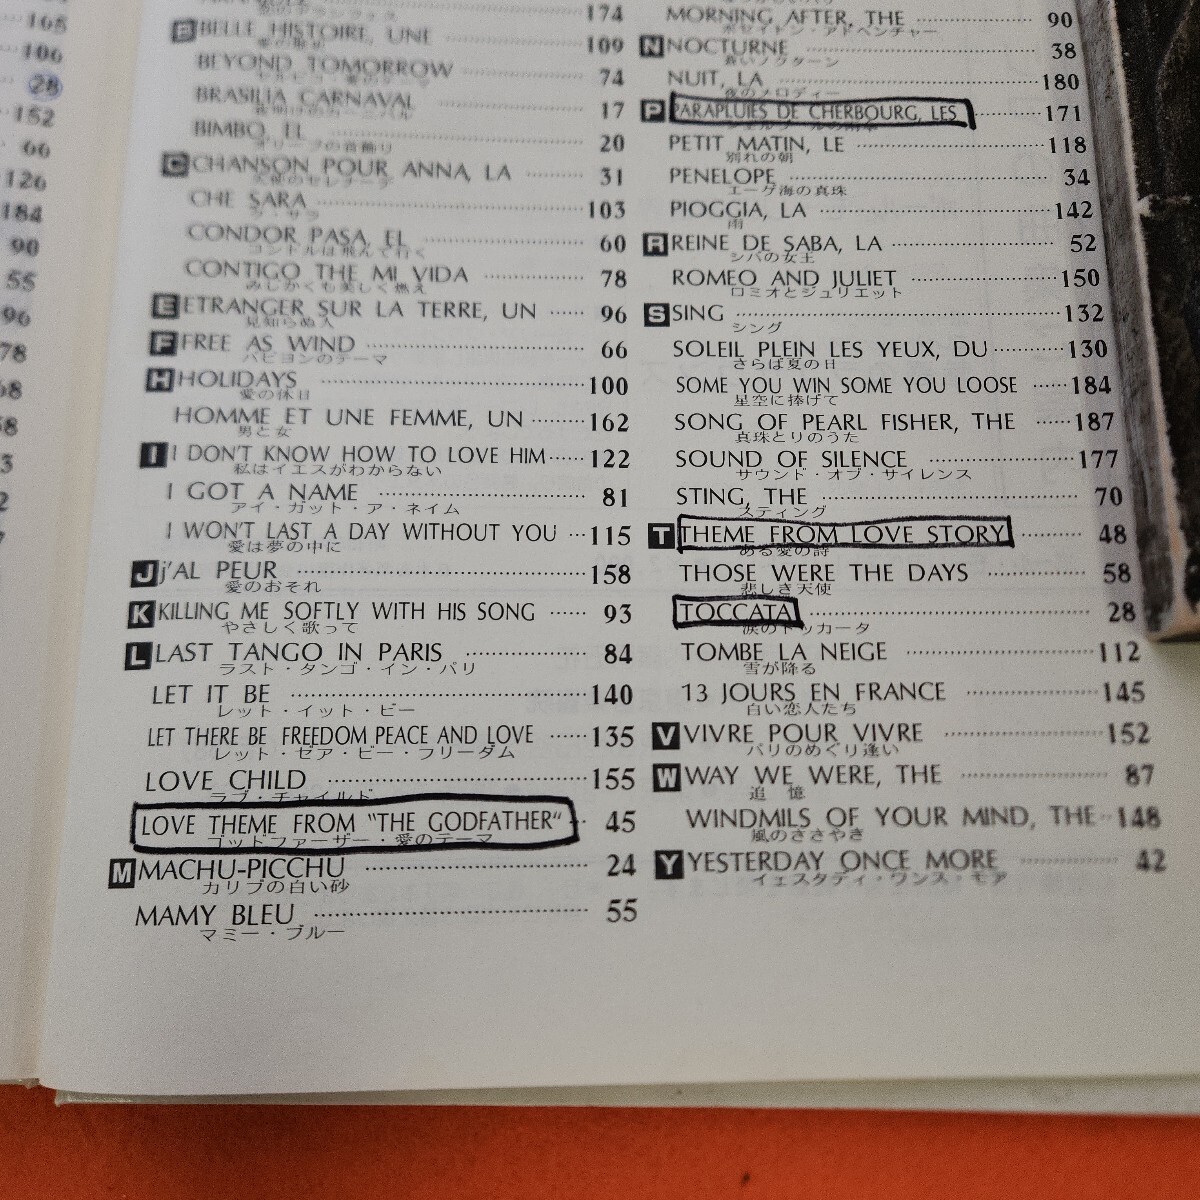 105
106
28
152
66
126
184
90
55
96
78
174
B BELLE HISTOIRE, UNE 109
BEYOND TOMORROW 74
BRASILIA CARNAVAL 17
BIMBO, EL 20
オリーブの首飾り
C CHANSON POUR ANNA, LA 31
天使のセレナーデ
CHE SARA 103
ケ・サラ
CONDOR PASA, EL 60
コンドルは飛んで行く
CONTIGO THE MI VIDA 78
みじかくも美しく燃え
E ETRANGER SUR LA TERRE, UN 96
見知らぬ人
F FREE AS WIND 66
パピヨンのテーマ
H HOLIDAYS 100
愛の休日
HOMME ET UNE FEMME, UN 162
男と女
I I DON'T KNOW HOW TO LOVE HIM 122
私はイエスがわからない
I GOT A NAME 81
アイ・ガット・ア・ネイム
I WON'T LAST A DAY WITHOUT YOU 115
愛は夢の中に
J j'AL PEUR 158
愛のおそれ
K KILLING ME SOFTLY WITH HIS SONG 93
やさしく歌って
L LAST TANGO IN PARIS 84
ラスト・タンゴ・イン・パリ
LET IT BE 140
レット・イット・ビー
LET THERE BE FREEDOM PEACE AND LOVE 135
レット・ゼア・ビー・フリーダム
LOVE CHILD 155
ラブ・チャイルド
LOVE THEME FROM "THE GODFATHER" 45
ゴットファーザー・愛のテーマ
M MACHU-PICCHU 24
カリブの白い砂
MAMY BLEU 55
マミー・ブルー
MORNING AFTER, THE 90
ポセイドン・アドベンチャー
N NOCTURNE 38
蒼いノクターン
NUIT, LA 180
夜のメロディー
P PARAPLUIES DE CHERBOURG, LES 171
PETIT MATIN, LE 118
別れの朝
PENELOPE 34
エーゲ海の真珠
PIOGGIA, LA 142
雨
R REINE DE SABA, LA 52
シバの女王
ROMEO AND JULIET 150
ロミオとジュリエット
S SING 132
シング
SOLEIL PLEIN LES YEUX, DU 130
さらば夏の日
SOME YOU WIN SOME YOU LOOSE 184
星空に捧げて
SONG OF PEARL FISHER, THE 187
真珠とりのうた
SOUND OF SILENCE 177
サウンド・オブ・サイレンス
STING, THE 70
スティング
T THEME FROM LOVE STORY 48
ある愛の詩
THOSE WERE THE DAYS 58
悲しき天使
TOCCATA 28
涙のトッカータ
TOMBE LA NEIGE 112
雪が降る
13 JOURS EN FRANCE 145
白い恋人たち
V VIVRE POUR VIVRE 152
パリのめぐり逢い
W WAY WE WERE, THE 87
追 憶
WINDMILS OF YOUR MIND, THE 148
風のささやき
Y YESTERDAY ONCE MORE 42
イエスタデイ・ワンス・モア